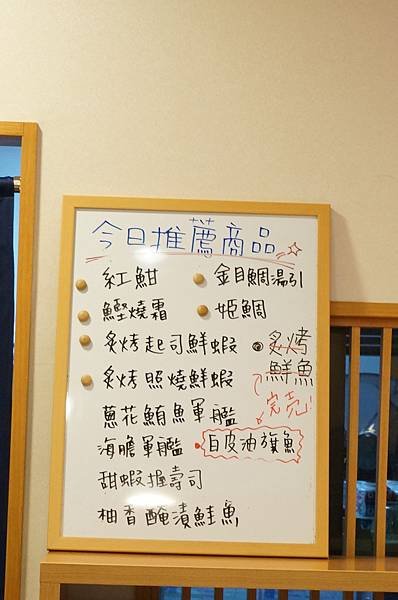 今日推薦商品
紅魽
金目鯛湯引
鰹燒霜
姫鯛
炙烤起司鮮蝦
炙烤
鮮魚
炙烤照燒鮮蝦
完売!
蔥花鮪魚軍艦
海膽軍艦
白皮油旗魚
甜蝦握壽司
柚香醃漬鮭魚